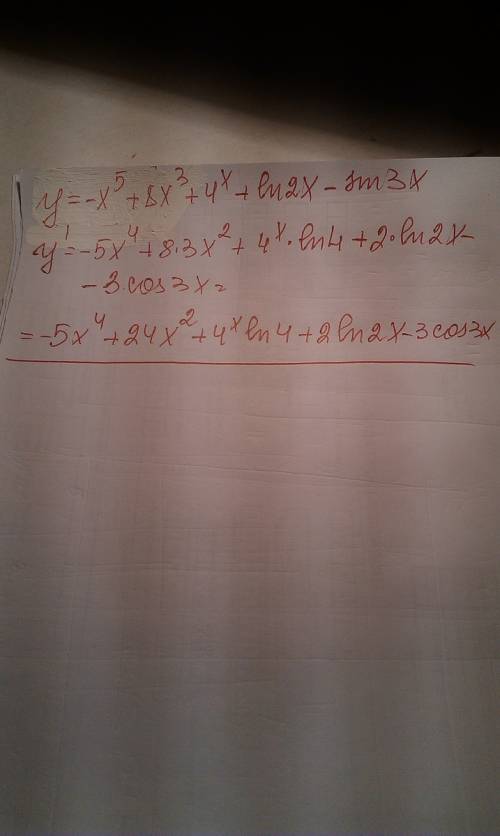 y = -x⁵ + 8x³ + 4ˣ + ln2x - sin3x
y' = -5x⁴ + 8·3x² + 4ˣ·ln4 + 2·ln2x -
- 3·cos3x =
= -5x⁴ + 24x² + 4ˣ ln4 + 2ln2x - 3cos3x